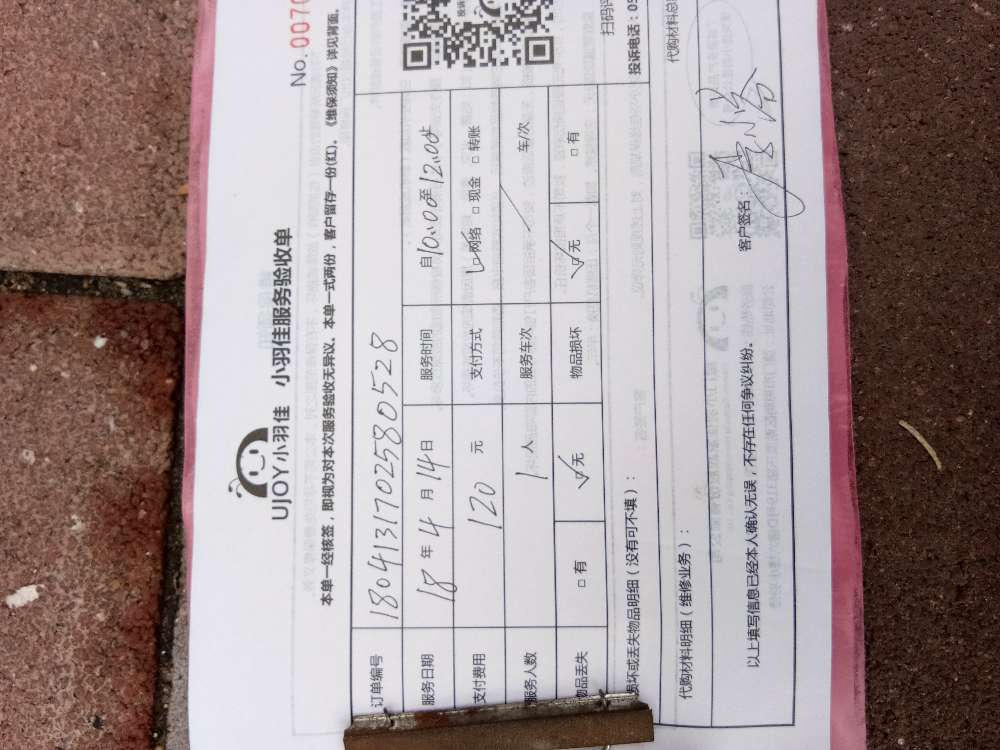 No. 0070
UJOY小羽佳 小羽佳服务验收单
本单一经核签，即视为对本次服务验收无异议。本单一式两份，客户留存一份(红)。《维保须知》详见背面。
订单编号 180413170258580528
服务日期 18 年 4 月 14 日 服务时间 自10:00至12:00止
支付费用 120 元 支付方式 ☑网络 □现金 □转账
服务人数 1 人 服务车次 / 车/次
物品丢失 □有 ☑无 物品损坏 ☑无 □有
损坏或丢失物品明细（没有可不填）：
投诉电话：05
扫码评
代购材料明细（维修业务）：
代购材料总
以上填写信息已经本人确认无误，不存在任何争议纠纷。
客户签名：